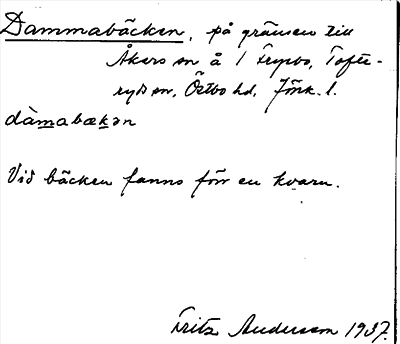 Dammabäcken, på gränsen till
Åkers sn å 1 Frysbo, Tofte-
ryds sn, Östbo hd, Jönk. l.
dàmabækən
Vid bäcken fanns förr en kvarn.
Fritz Andersson 1937.